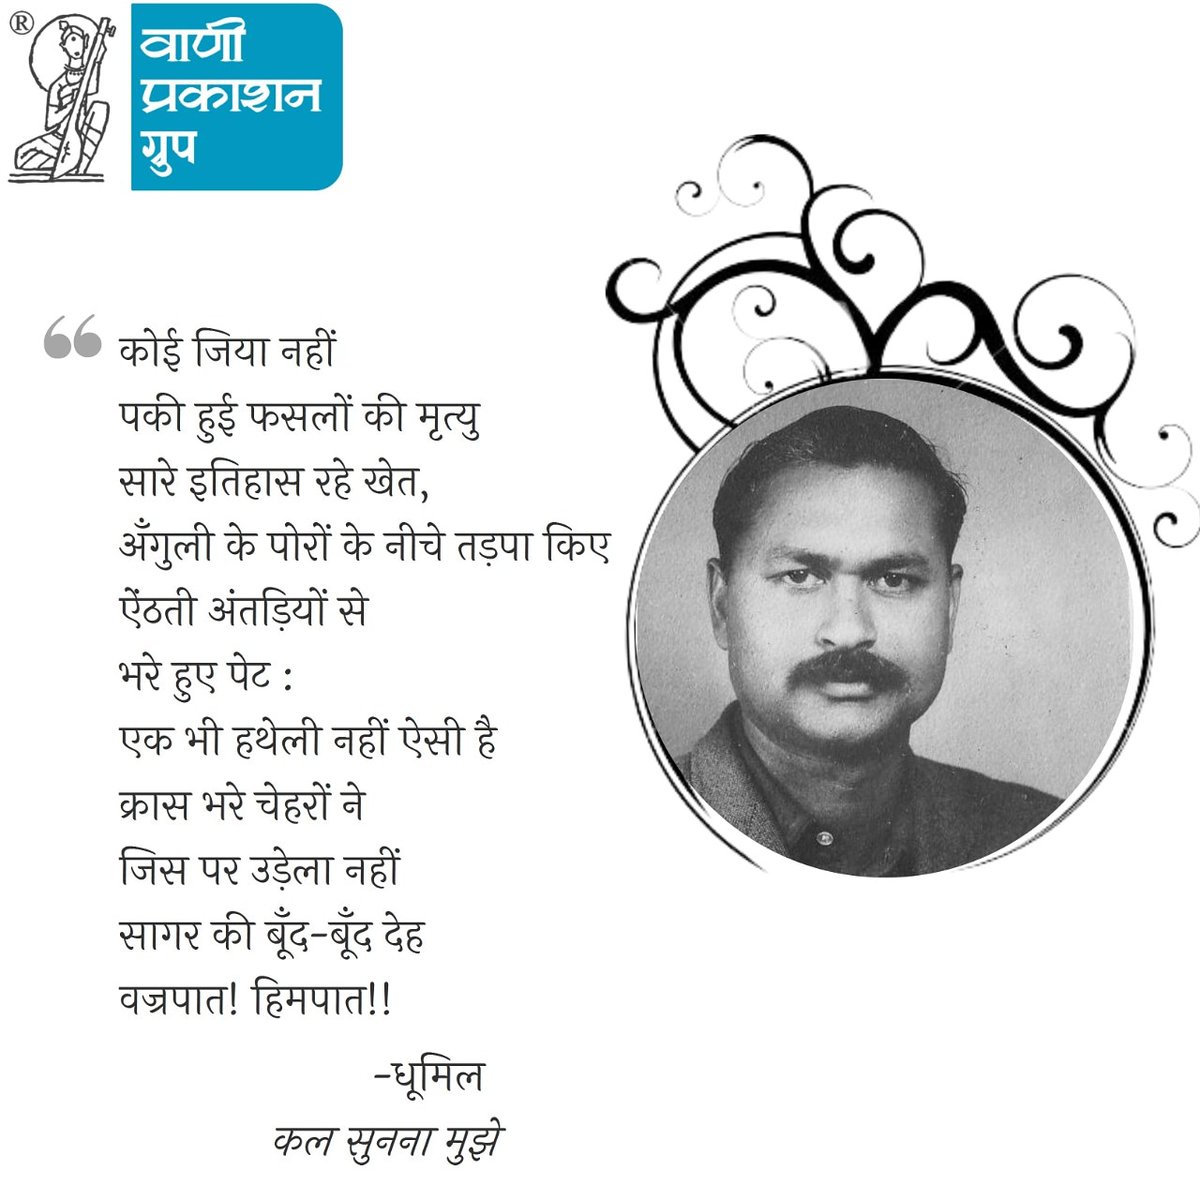 ®
वाणी
प्रकाशन
ग्रुप
“ कोई जिया नहीं
पकी हुई फसलों की मृत्यु
सारे इतिहास रहे खेत,
अँगुली के पोरों के नीचे तड़पा किए
ऐंठती अंतड़ियों से
भरे हुए पेट :
एक भी हथेली नहीं ऐसी है
क्रास भरे चेहरों ने
जिस पर उड़ेला नहीं
सागर की बूँद-बूँद देह
वज्रपात! हिमपात!!
-धूमिल
कल सुनना मुझे